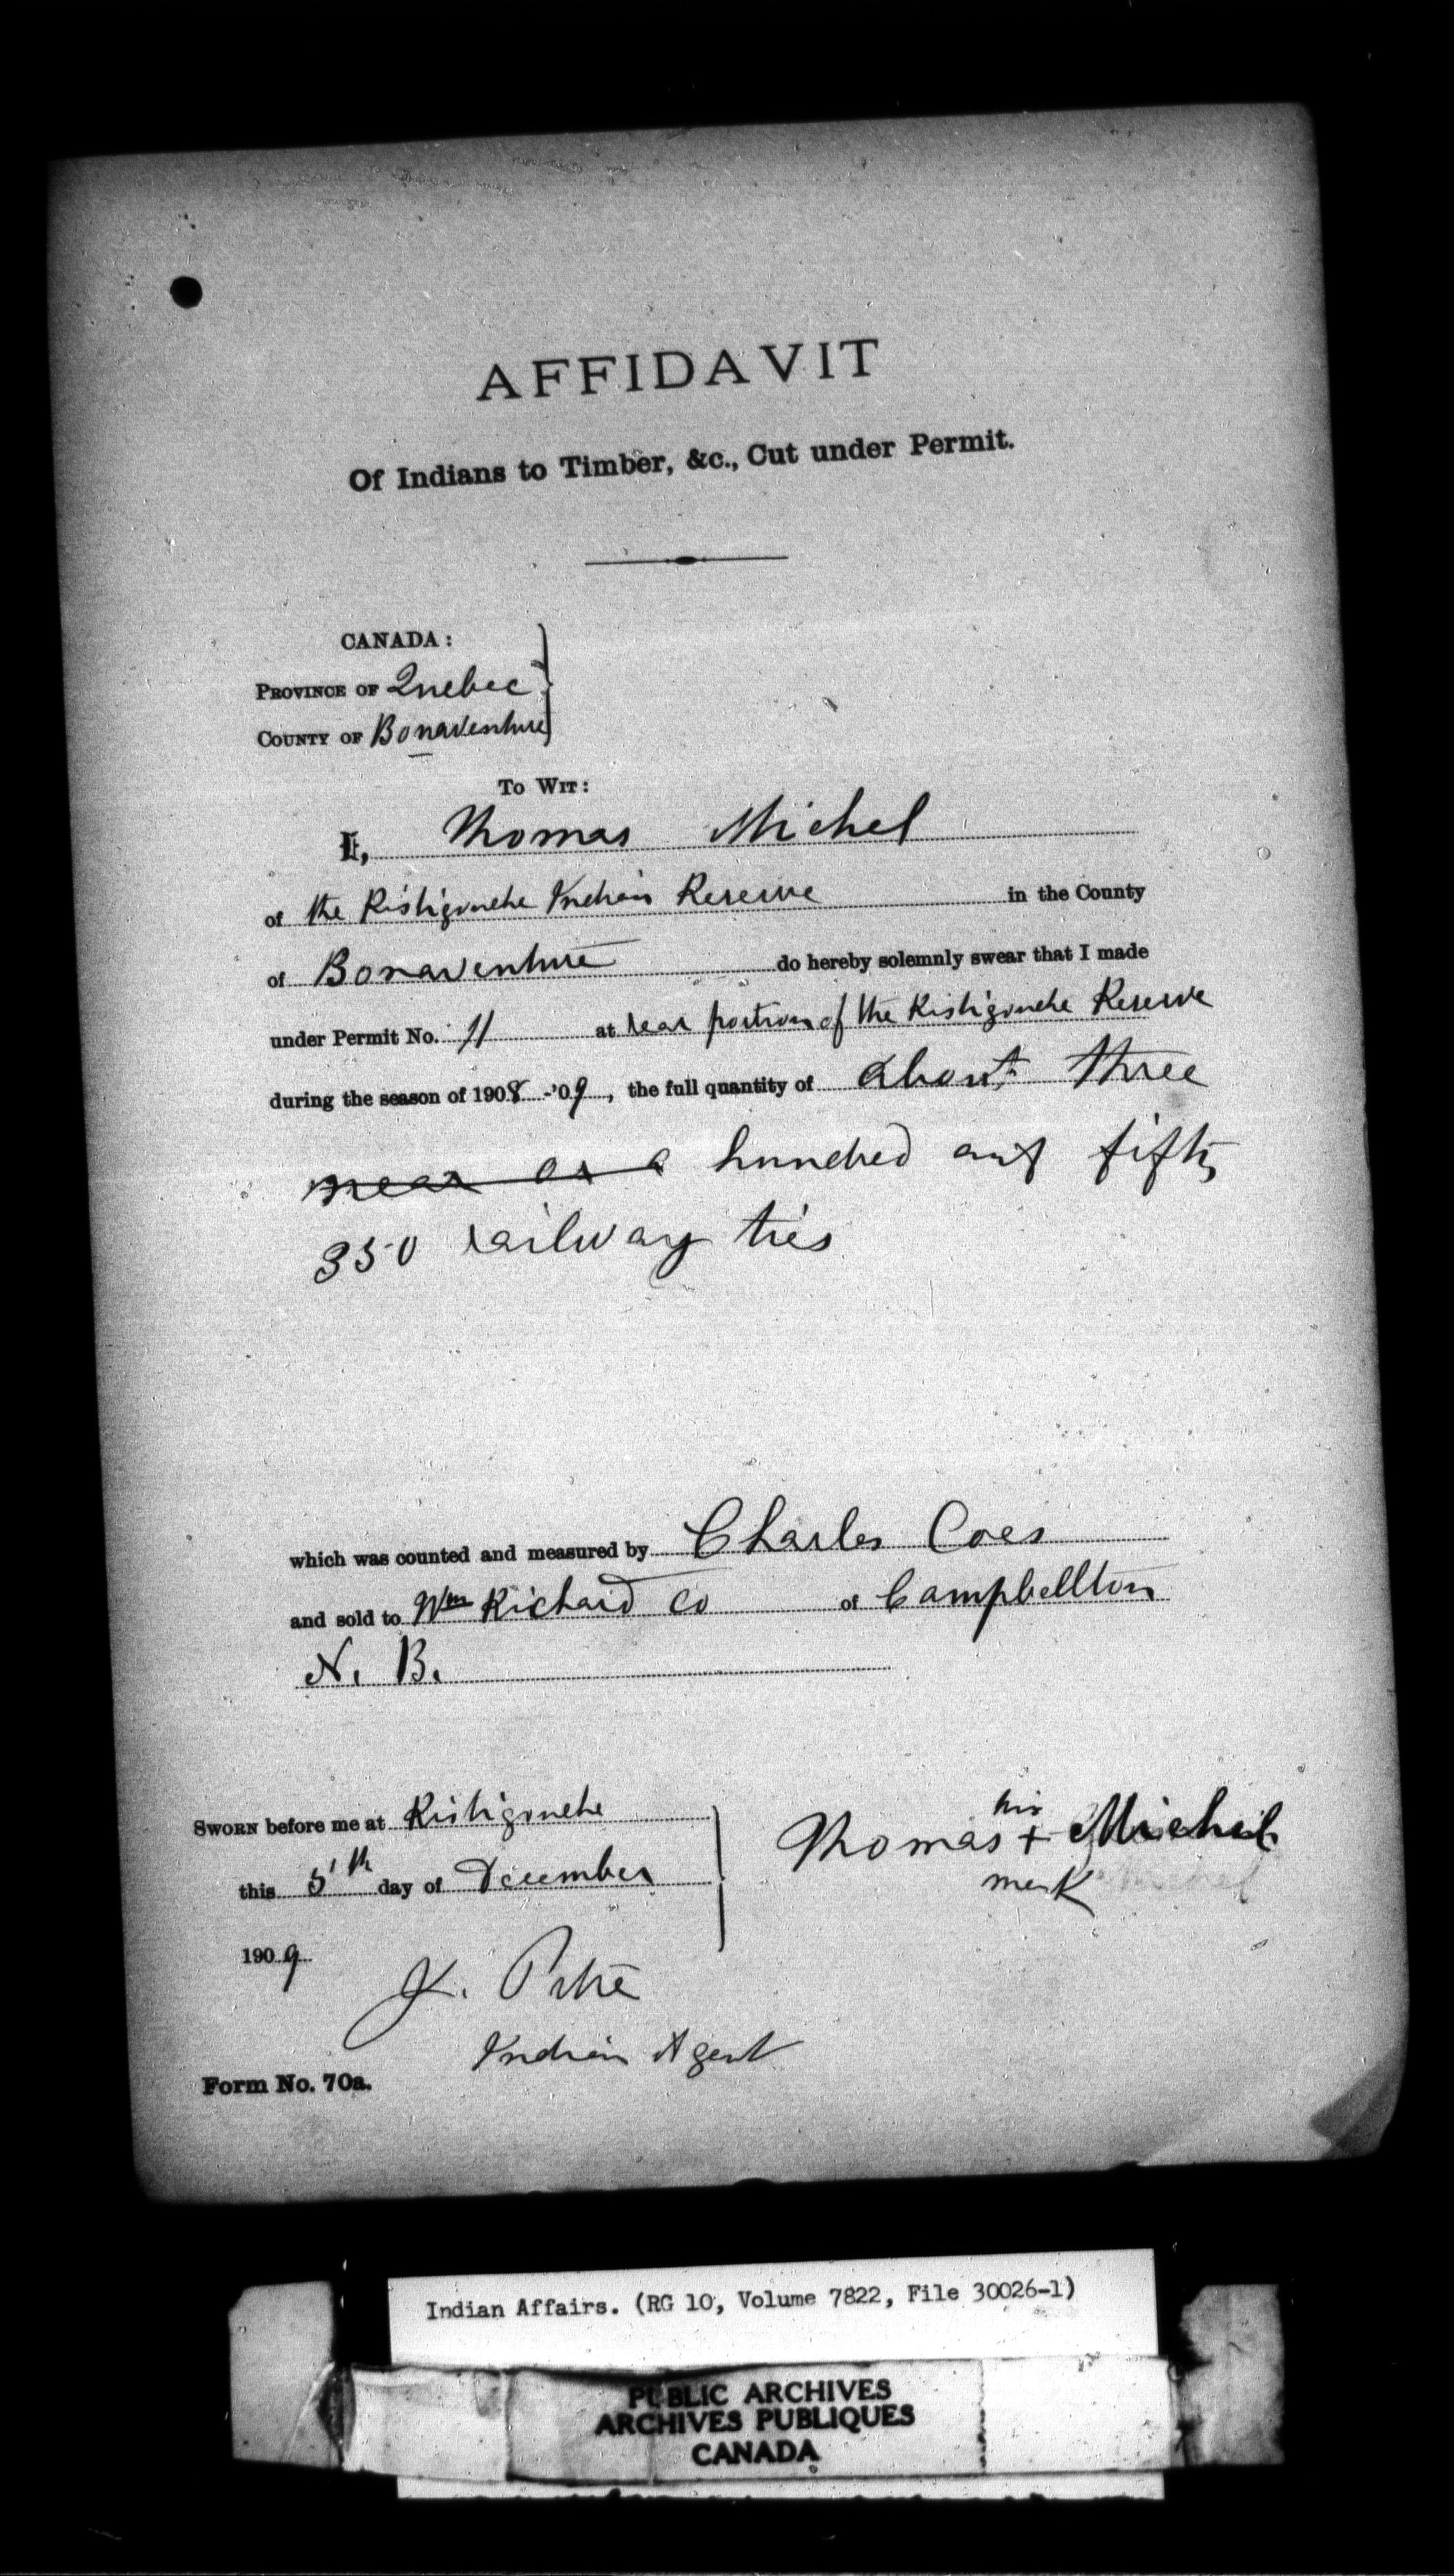 AFFIDAVIT
Of Indians to Timber, &c., Cut under Permit.
CANADA:
PROVINCE OF Quebec
COUNTY OF Bonaventure
TO WIT:
I, Thomas Michel
of the Ristigouche Indian Reserve in the County
of Bonaventure do hereby solemnly swear that I made
under Permit No. 11 at rear portion of the Ristigouche Reserve
during the season of 1908-'09, the full quantity of about three
near as a hundred and fifty
350 railway ties
which was counted and measured by Charles Coes
and sold to Wm Richard Co of Campbellton
N. B.
SWORN before me at Ristigouche
this 5th day of December
1909
his
Thomas + Michel
mark
J. Pitre
Indian Agent
Form No. 70a.
Indian Affairs. (RG 10, Volume 7822, File 30026-1)
PUBLIC ARCHIVES
ARCHIVES PUBLIQUES
CANADA